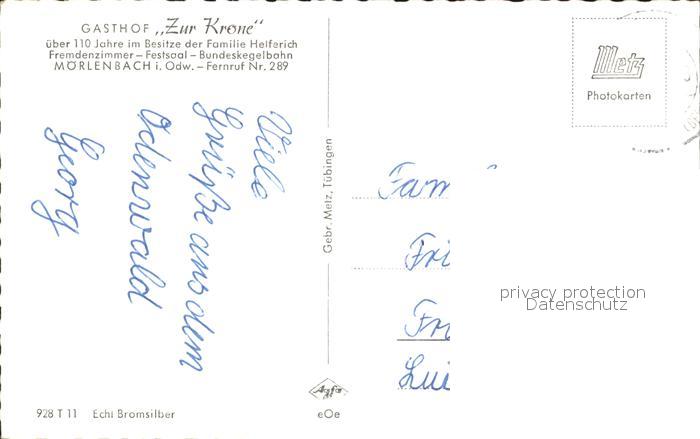 GASTHOF „Zur Krone“
über 110 Jahre im Besitze der Familie Helferich
Fremdenzimmer – Festsaal – Bundeskegelbahn
MÖRLENBACH i. Odw. – Fernruf Nr. 289
Viele
Grüße aus dem
Odenwald
Georg
Gebr. Metz, Tübingen
Metz
Photokarten
Fam
Fri
Fr
Lui
privacy protection
Datenschutz
928 T 11 Echt Bromsilber
Agfa
eOe